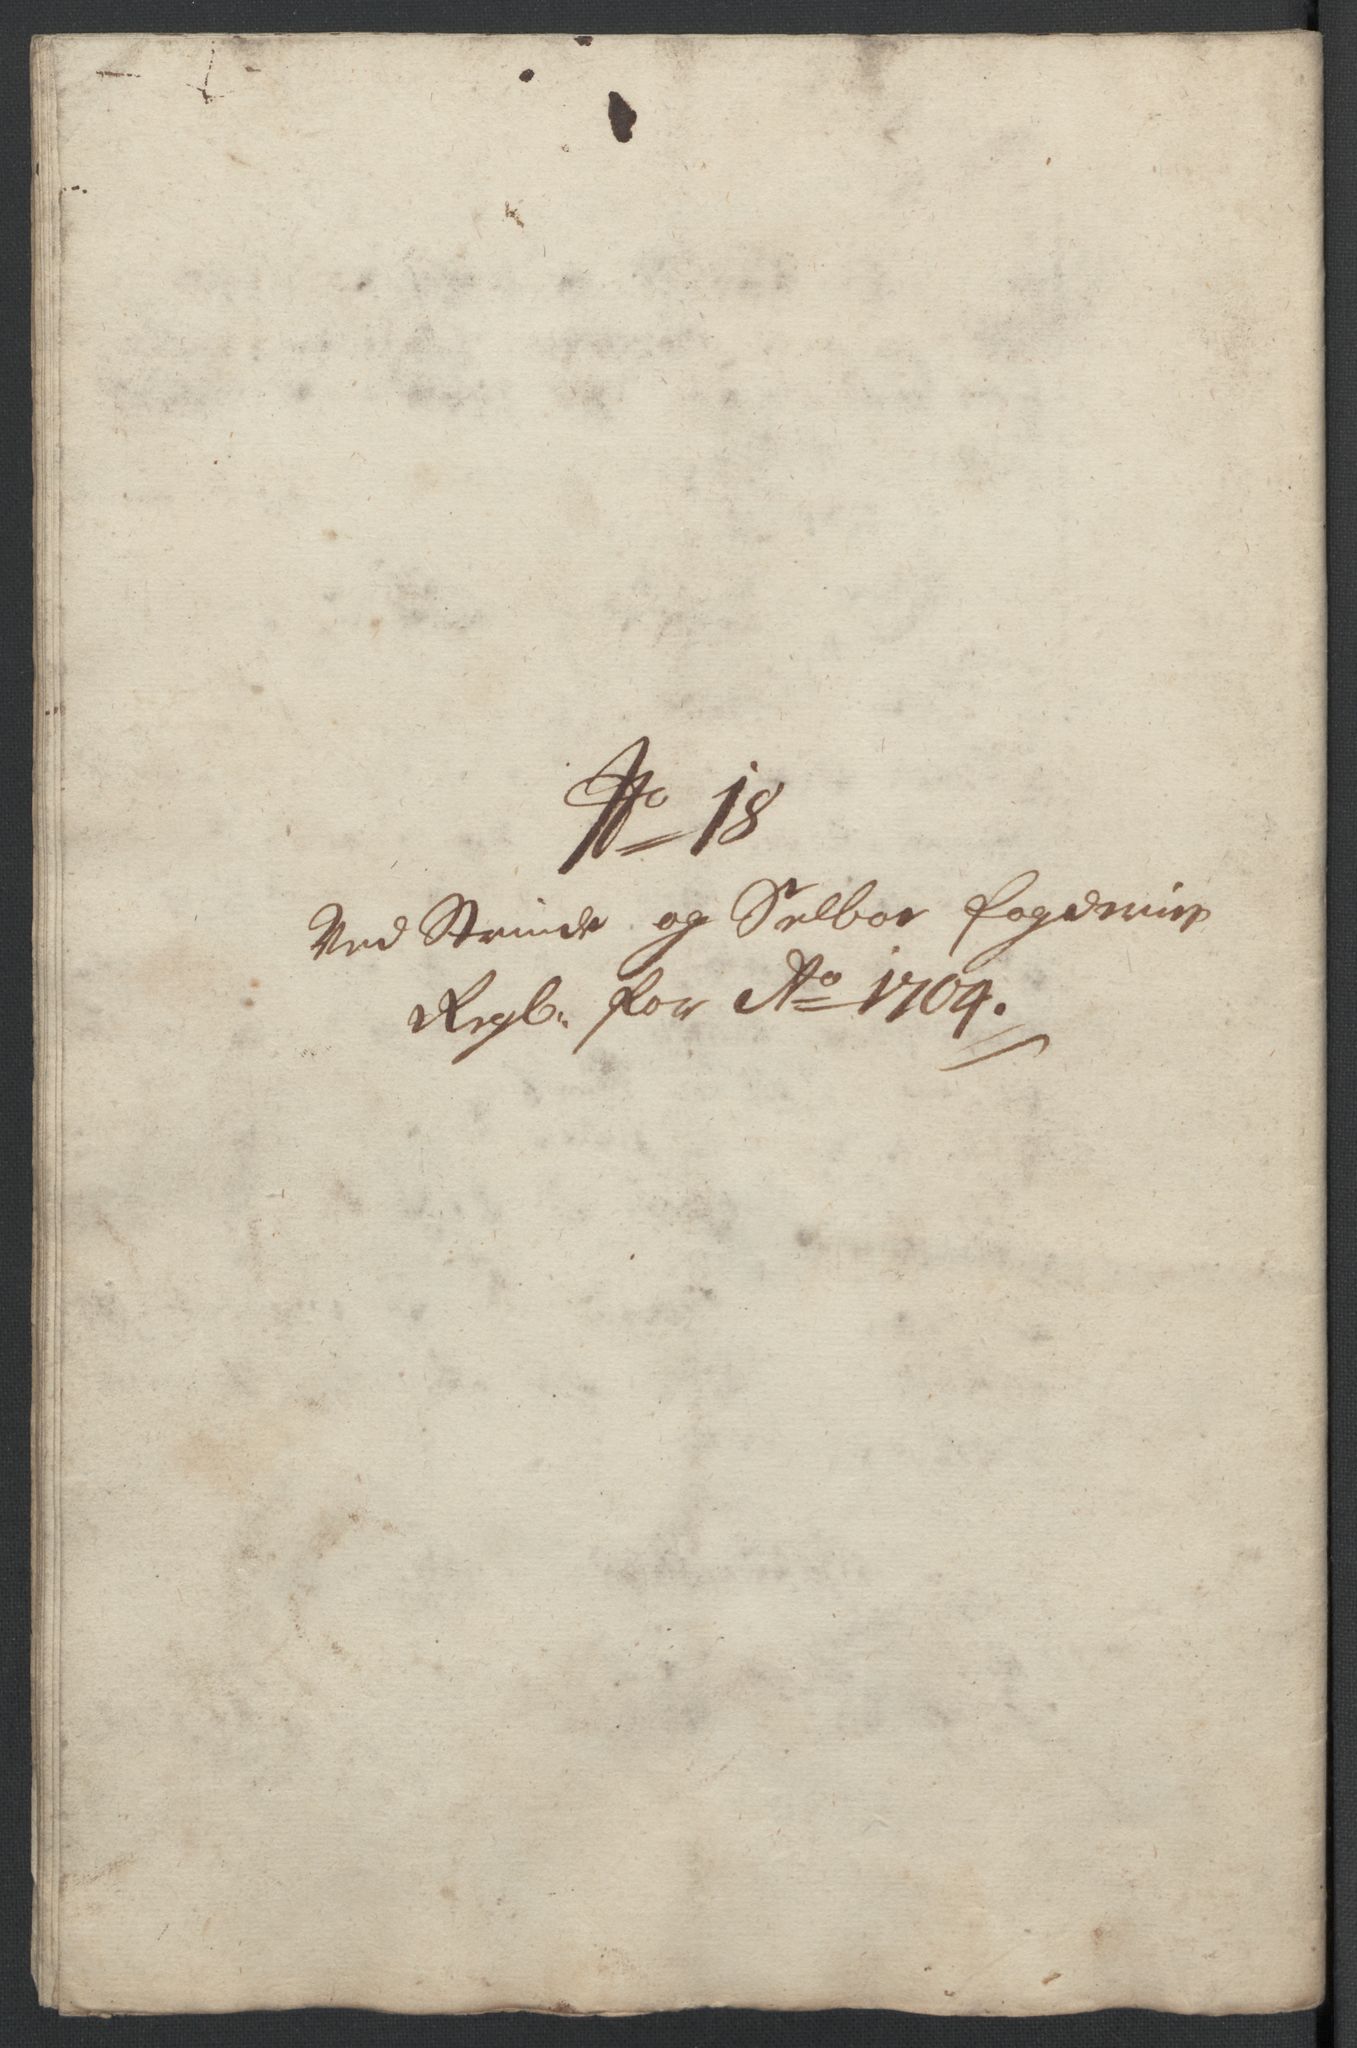 No 18
Ved Strinde og Selboe fogderies
Regb: for Ao 1704.